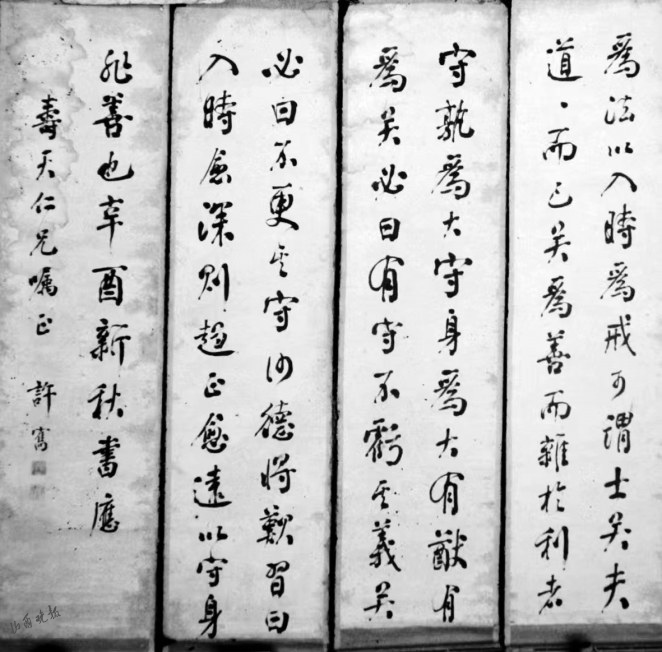 為法以入時為戒可謂士矣夫
道、而已矣為善而雜於利者
守孰為大守身為大有猷有
為矣必曰有守不虧其義矣
必曰不更其守何德將歎習曰
入時愈深則趨正愈遠以守身
非善也辛酉新秋書應
壽天仁兄囑正 許